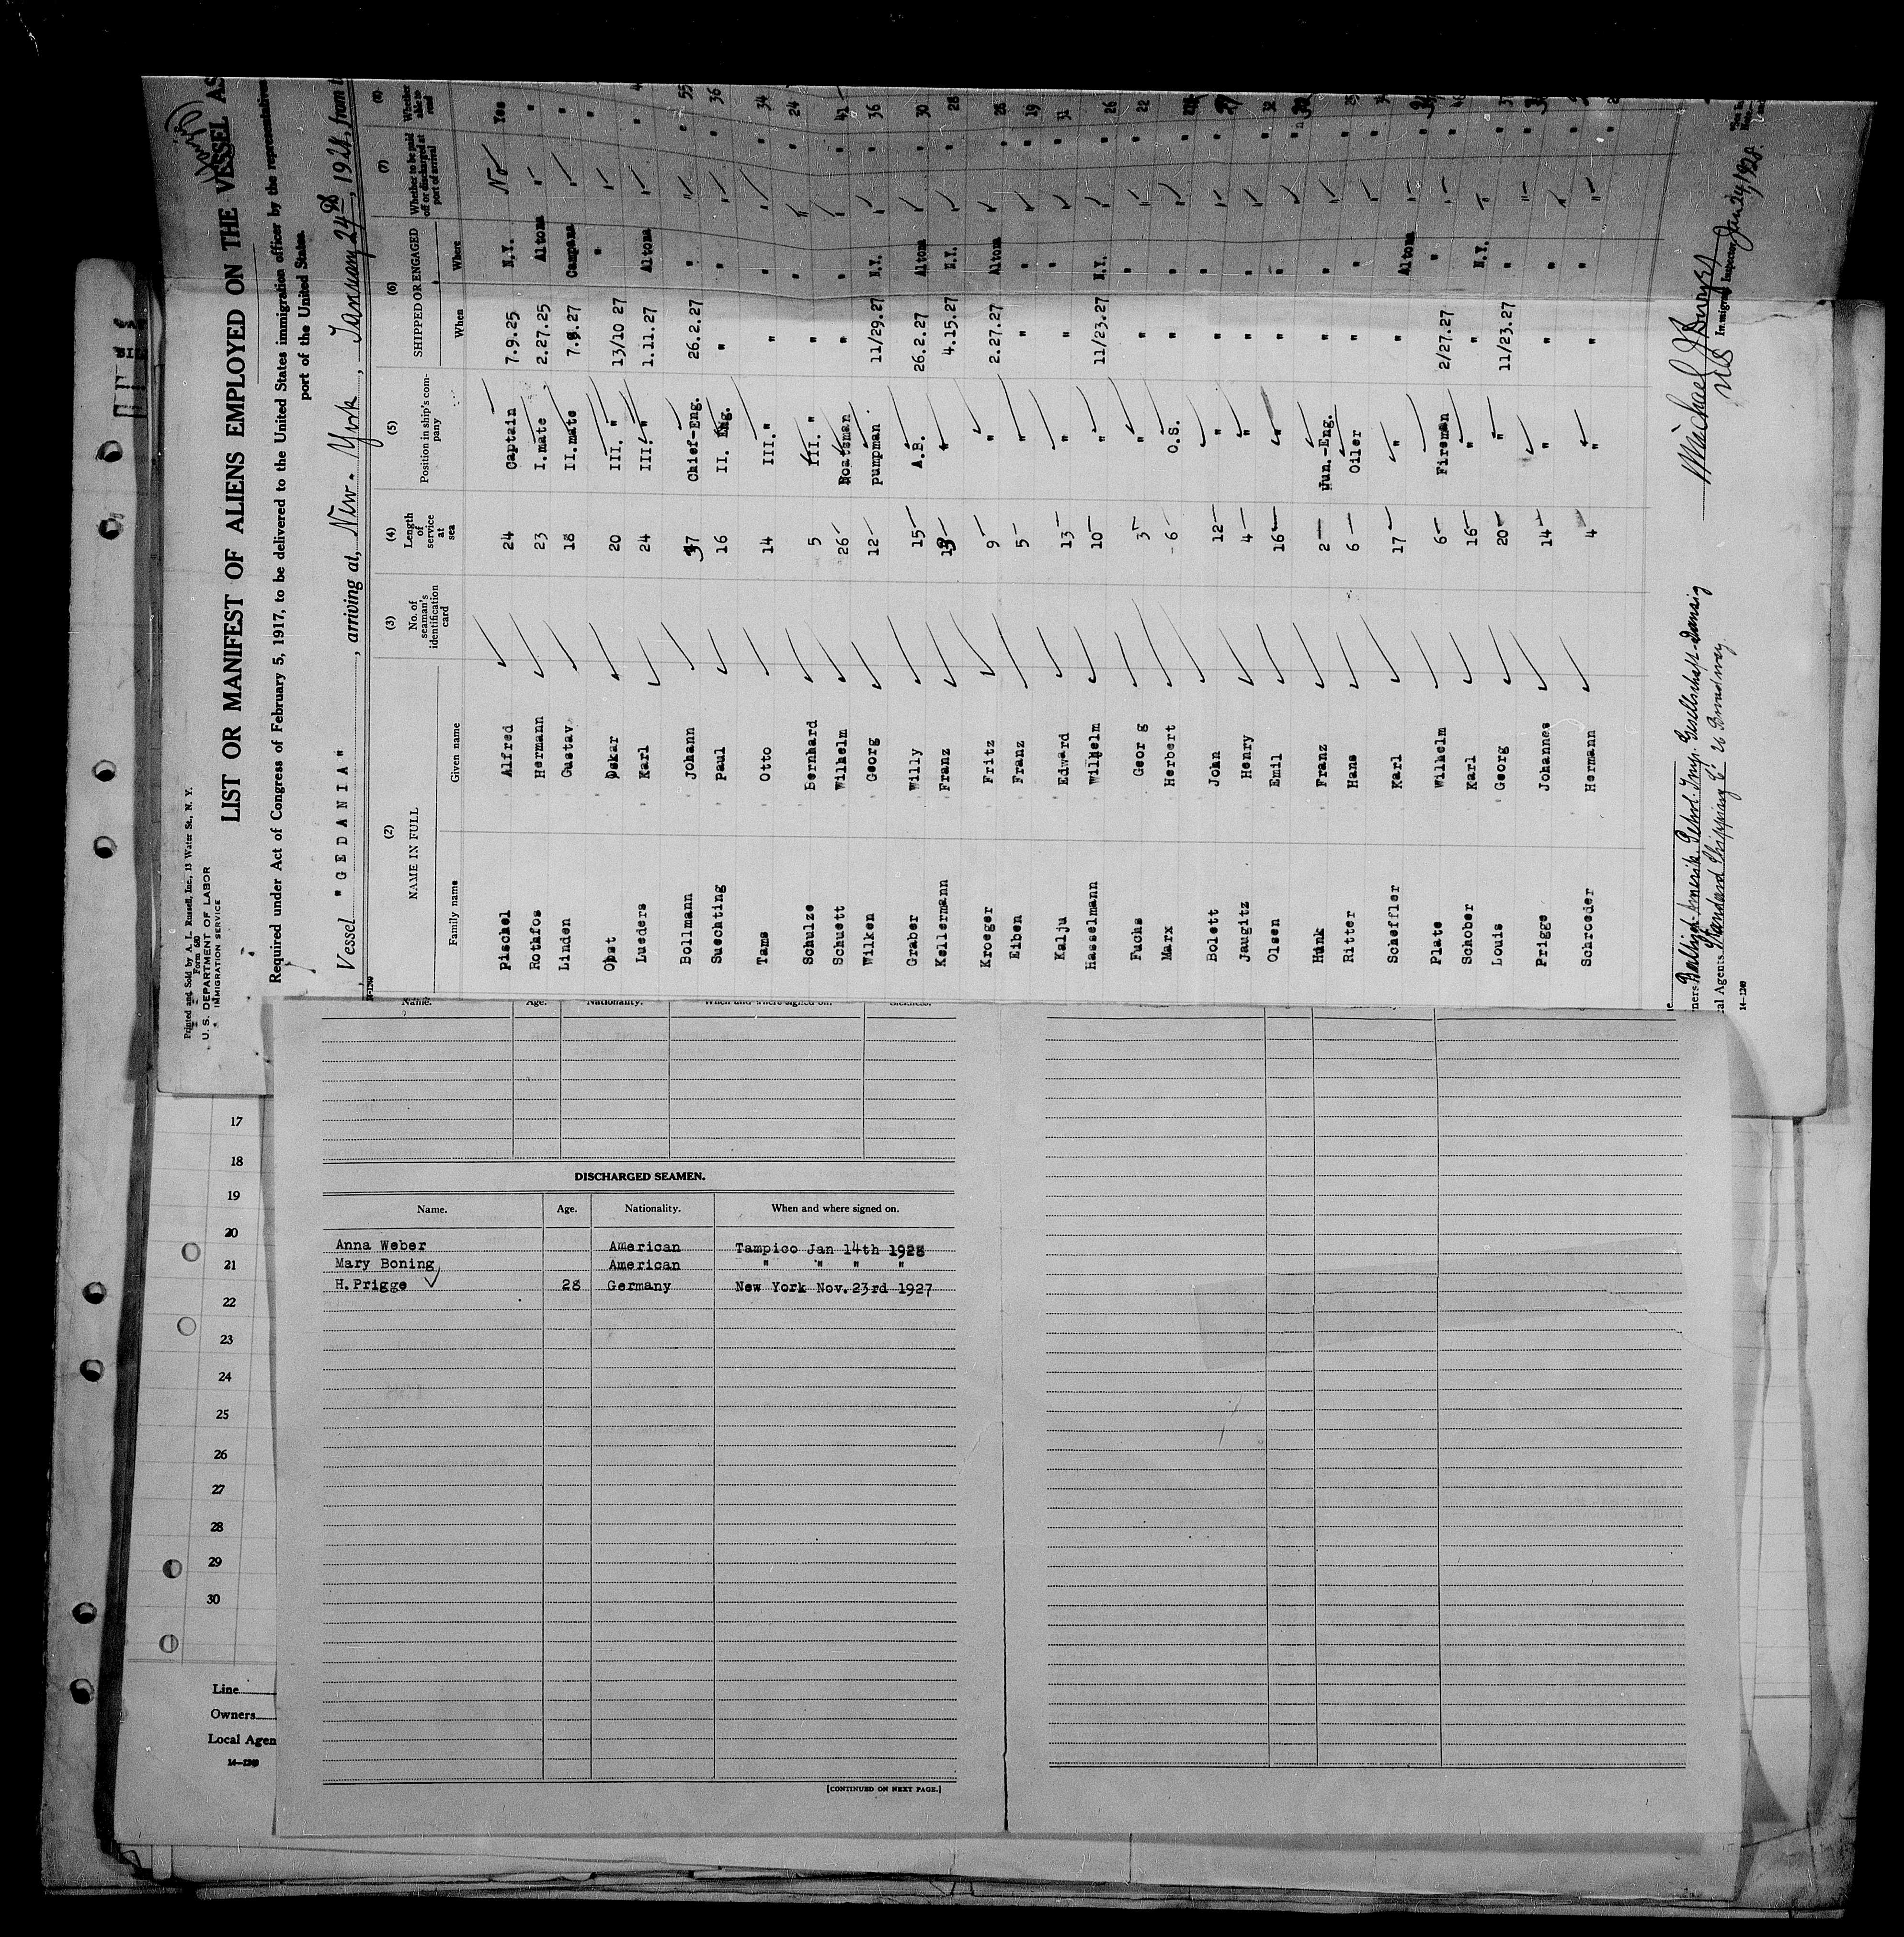 Printed and Sold by A. L. Russell, Inc., 13 Water St., N. Y.
Form 680
U. S. DEPARTMENT OF LABOR
IMMIGRATION SERVICE
LIST OR MANIFEST OF ALIENS EMPLOYED ON THE VESSEL AS
Required under Act of Congress of February 5, 1917, to be delivered to the United States immigration officer by the representatives
port of the United States.
Vessel "GEDANIA", arriving at, New-York, January 24th, 1928, from
14-1240
(2) (3) (4) (5) (6) (7) (8)
NAME IN FULL No. of seaman's identification card Length of service at sea Position in ship's company SHIPPED OR ENGAGED Whether to be paid off or discharged at port of arrival Whether able to read
Family name Given name When Where
Pischel Alfred 24 Captain 7.9.25 N.Y. No Yes
Rothfos Hermann 23 I.mate 2.27.25 Altona " "
Linden Gustav 18 II.mate 7.9.27 Campana " "
Obst Oskar 20 III. " 13/10 27 " " "
Lueders Karl 24 III. " 1.11.27 Altona " "
Bollmann Johann 37 Chief-Eng. 26.2.27 " " " 55
Suechting Paul 16 II. Eng. " " " " 36
Tams Otto 14 III. " " " " " 34
Schulze Bernhard 5 III. " " " " " 24
Schuett Wilhelm 26 Boatsman " " " " 41
Wilken Georg 12 Pumpman 11/29.27 N.Y. " " 36
Graber Willy 15 A.B. 26.2.27 Altona " " 30
Kellermann Franz " 4.15.27 N.Y. " " 28
Kroeger Fritz 9 " 2.27.27 Altona " " 28
Eiben Franz 5 " " " " " 19
Kalju Edward 13 " " " " " 31
Hasselmann Wilhelm 10 " 11/23.27 N.Y. " " 26
Fuchs Georg 3 " " " " " 22
Marx Herbert 6 O.S. " " " "
Bolett John 12 " " " " "
Jaugitz Henry 4 " " " " "
Olsen Emil 16 " " " " " 32
Hunk Franz 2 Jun.-Eng. " " " "
Ritter Hans 6 Oiler " " " "
Scheffler Karl 17 " " Altona " "
Plate Wilhelm 6 Fireman 2/27.27 " " "
Schober Karl 16 " " N.Y. " "
Louis Georg 20 " 11/23.27 " " "
Prigge Johannes 14 " " " " "
Schroeder Hermann 4 " " " " "
Jan 24, 1928.
Immigrant Inspector
Standard Shipping Co. 26 Broadway
al Agents
14-1240
Name. Age. Nationality. When and where signed on. Sickness.
DISCHARGED SEAMEN.
Name. Age. Nationality. When and where signed on.
Anna Weber American Tampico Jan 14th 1928
Mary Boning American " " " "
H.Prigge 28 Germany New York Nov.23rd 1927
[CONTINUED ON NEXT PAGE.]
17
18
19
20
21
22
23
24
25
26
27
28
29
30
Line
Owners
Local Agen
14-1240